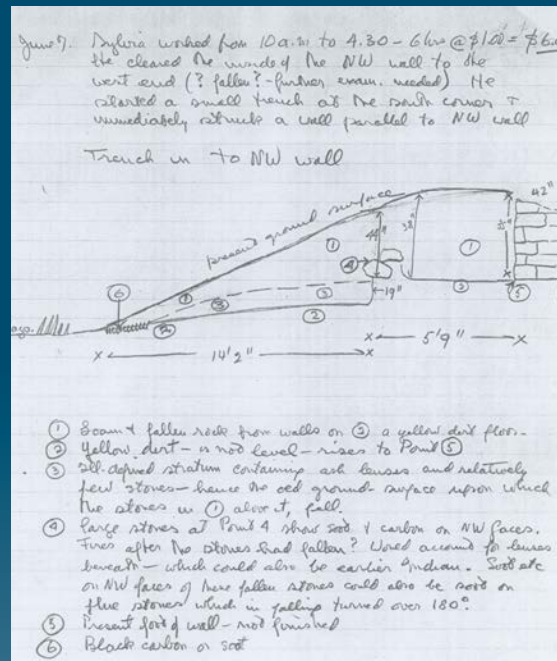 June 7. Sylvia worked from 10 a.m to 4.30 – 6 hrs @ $1.00 = $6.
He cleared the inside of the NW wall to the
west end (? fallen? – further exam. needed) He
started a small trench at the south corner &
immediately struck a wall parallel to NW wall
Trench in to NW wall
present ground surface
42"
44"
38"
1
1
4
6
1
3
3
19"
2
2
2
5
14' 2"
5' 9"
① Loam & fallen rock from walls on ② a yellow dirt floor.
② Yellow dirt – is not level – rises to Point ⑤
③ Ill-defined stratum containing ash lenses and relatively
few stones – hence the old ground-surface upon which
the stones in ① above it, fell.
④ Large stones at Point 4 show soot & carbon on NW faces.
Fires after the stones had fallen? Would account for lenses
beneath – which could also be earlier Indian. Soot etc
on NW faces of these fallen stones could also be soot on
flue stones which in falling turned over 180°.
⑤ Present foot of wall – not finished
⑥ Black carbon or soot